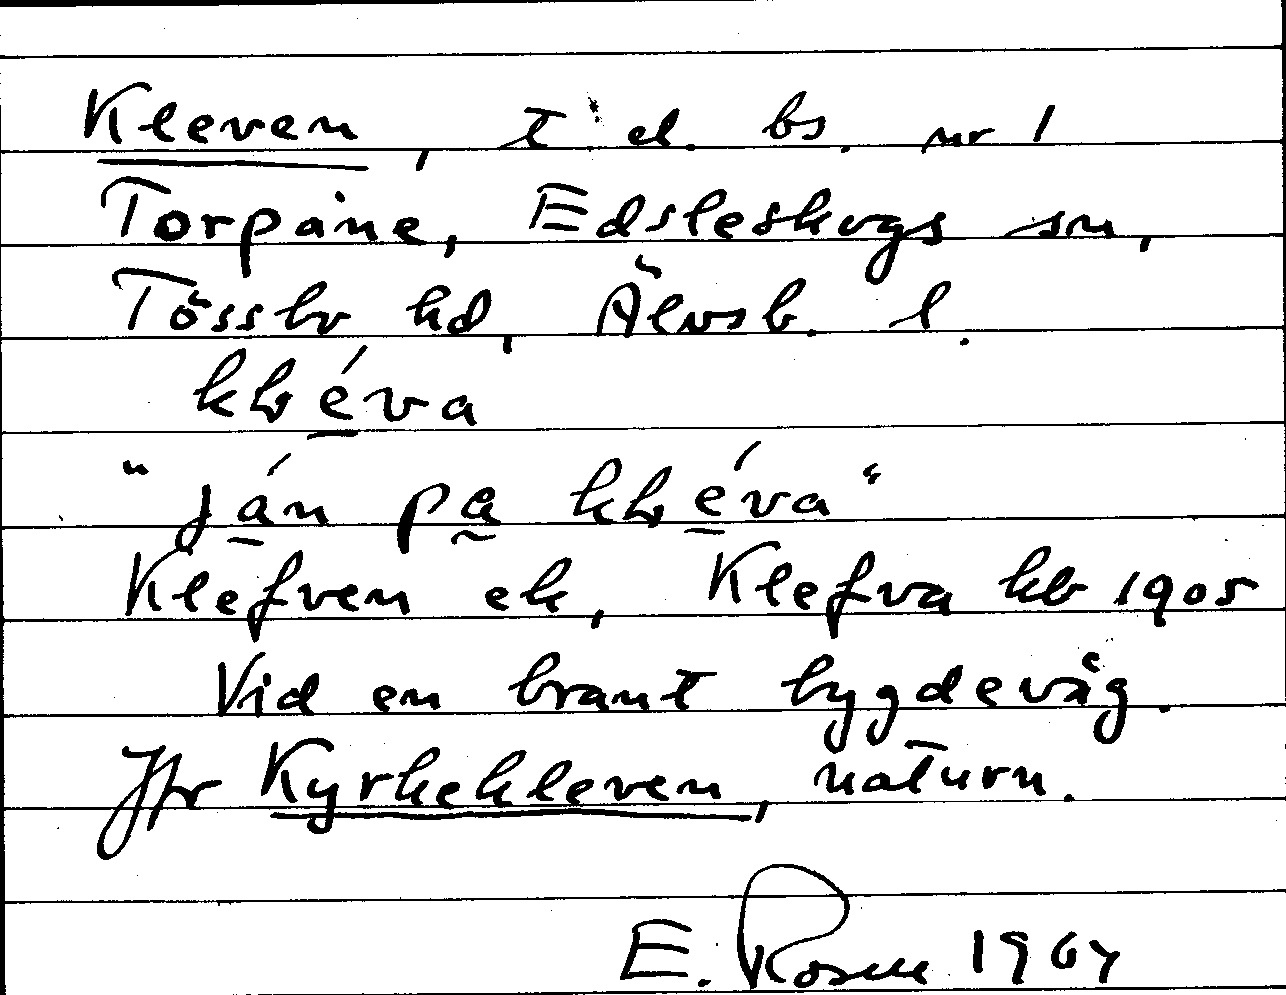 Kleven, t el. bs. nr 1
Torpane, Edsleskogs sn,
Tössbo hd, Älvsb. l.
Klefven ek, Klefva kb 1905
Vid en brant bygdeväg.
Jfr Kyrkekleven, naturn.
E. Rosell 1967